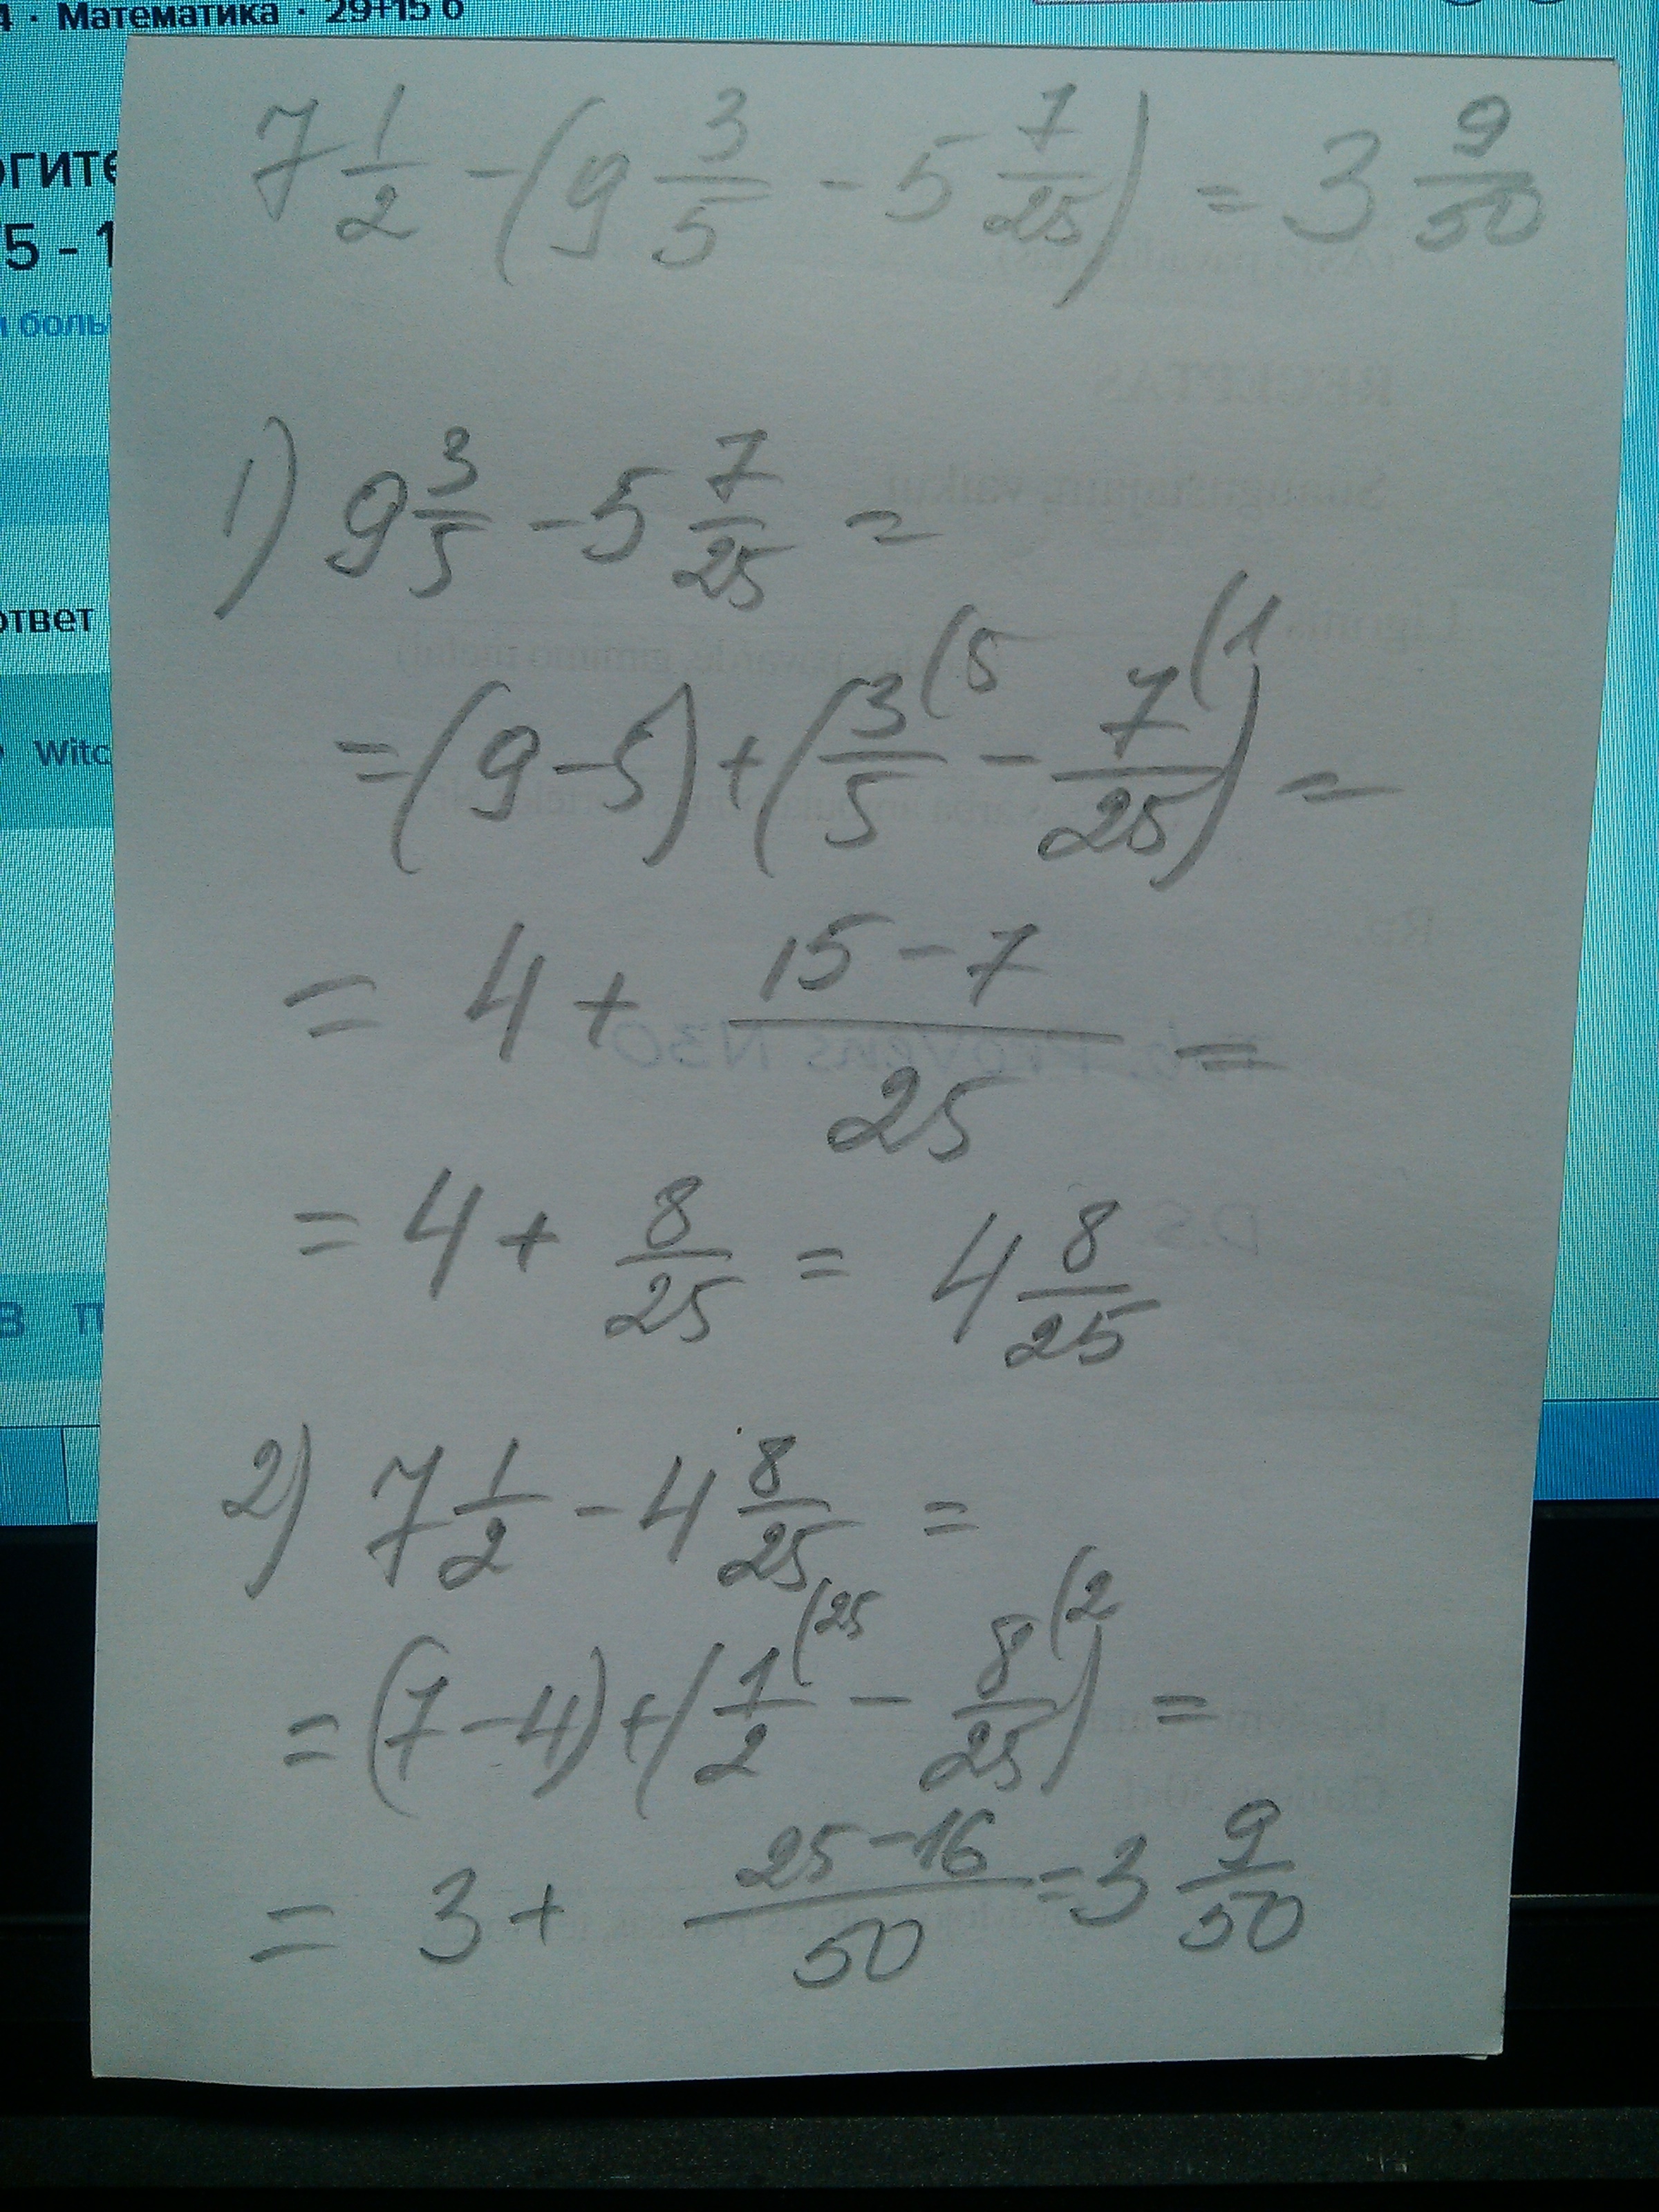 4 · Математика · 29+15 б
огите
5 - 1
и боль
ответ
Witc
в п
7 1/2 - (9 3/5 - 5 7/25) = 3 9/50
1) 9 3/5 - 5 7/25 =
= (9 - 5) + (3/5 (5 - 7/25 (1) =
= 4 + 15 - 7/25 =
= 4 + 8/25 = 4 8/25
2) 7 1/2 - 4 8/25 =
= (7 - 4) + (1/2 (25 - 8/25 (2) =
= 3 + 25 - 16/50 = 3 9/50